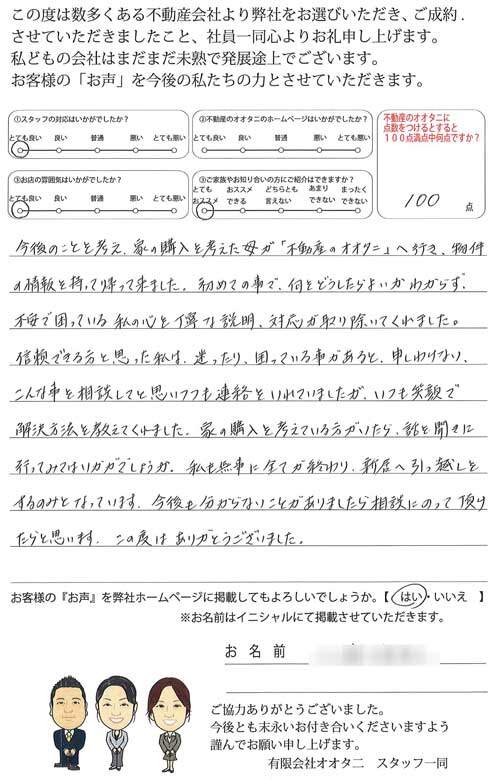 この度は数多くある不動産会社より弊社をお選びいただき、ご成約.
させていただきましたこと、社員一同心よりお礼申し上げます。
私どもの会社はまだまだ未熟で発展途上でございます。
お客様の「お声」を今後の私たちの力とさせていただきます。
①スタッフの対応はいかがでしたか?
とても良い 良い 普通 悪い とても悪い
②不動産のオオタニのホームページはいかがでしたか?
とても良い 良い 普通 悪い とても悪い
③お店の雰囲気はいかがでしたか?
とても良い 良い 普通 悪い とても悪い
⑤ご家族やお知り合いの方にご紹介はできますか?
とても オススメ どちらとも あまり まったく
おススメ できる 言えない できない できない
不動産のオオタニに
点数をつけるとすると
100点満点中何点ですか?
100 点
今後のことを考え、家の購入を考えた母が「不動産のオオタニ」へ行き、物件
の情報を持って帰って来ました。初めての事で、何をどうしたらよいかわからず、
不安で困っている私の心を丁寧な説明、対応が取り除いてくれました。
信頼できる方と思った私は、迷ったり、困っている事があると、申しわけない、
こんな事を相談してと思いつつも連絡をいれていましたが、いつも笑顔で
解決方法を教えてくれました。家の購入を考えている方がいたら、話を聞きに
行ってみてはいかがでしょうか。私も無事に全てが終わり、新居へ引っ越しを
するのみとなっています。今後も分からないことがありましたら相談にのって頂け
たらと思います。この度はありがとうございました。
お客様の『お声』を弊社ホームページに掲載してもよろしいでしょうか。【 はい・いいえ 】
※お名前はイニシャルにて掲載させていただきます。
お 名 前
ご協力ありがとうございました。
今後とも末永いお付き合いくださいますよう
謹んでお願い申し上げます。
有限会社オオタニ スタッフ一同